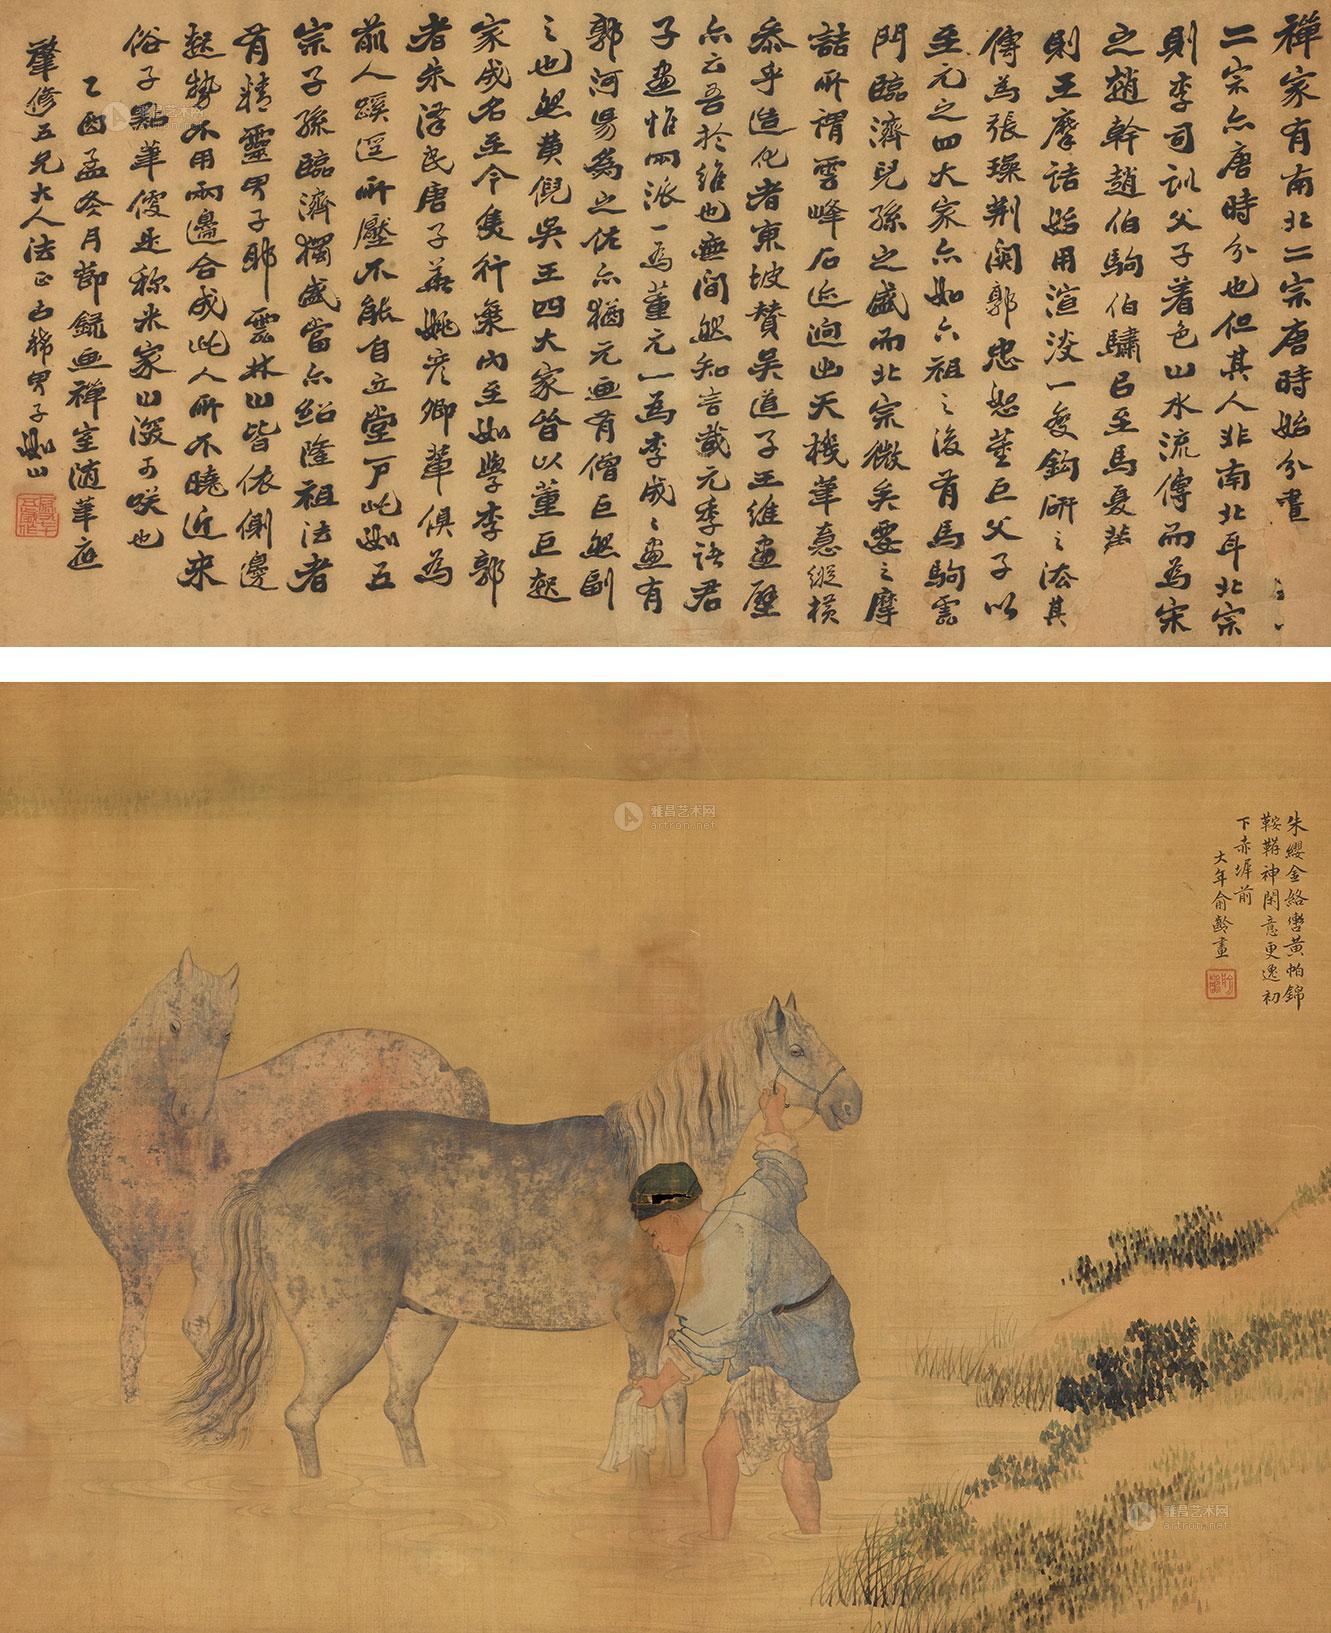 禪家有南北二宗唐時始分畫
二宗亦唐時分也但其人非南北耳北宗
則李司訓父子着色山水流傳而為宋
之趙幹趙伯駒伯驌以至馬夏輩
則王摩詰始用渲淡一變鈎研之法其
傳為張璪荆関郭忠恕董巨父子以
至元之四大家亦如六祖之後有馬駒雲
門臨濟兒孫之盛而北宗微矣要之摩
詰所謂雲峰石迹迥出天機筆意縱橫
參乎造化者東坡贊吳道子王維畫壁
亦云吾於維也無間然知言哉元季諸君
子畫惟兩派一為董元一為李成成畫有
郭河陽為之佐亦猶元畫有僧巨然副
之也然黃倪吳王四大家皆以董巨起
家成名至今隻行
者朱澤民唐子華姚彦卿輩俱為
前人蹊逕所壓不能自立堂户此如五
宗子孫臨濟獨盛當亦紹隆祖法者
有精靈男子耶雲林山皆依側邊
起勢不用兩邊合成此人所不曉近來
俗子點筆便是稱米家山深可咲也
乙酉孟冬月節録畫禪室随筆應
肇修五兄大人法正古稀男子如山
朱纓金絡轡黃帕錦
鞍韉神閑意更逸初
下赤墀前
大年俞齡畫
雅昌艺术网
artron.net
雅昌艺术网
artron.net
雅昌艺术网
artron.net